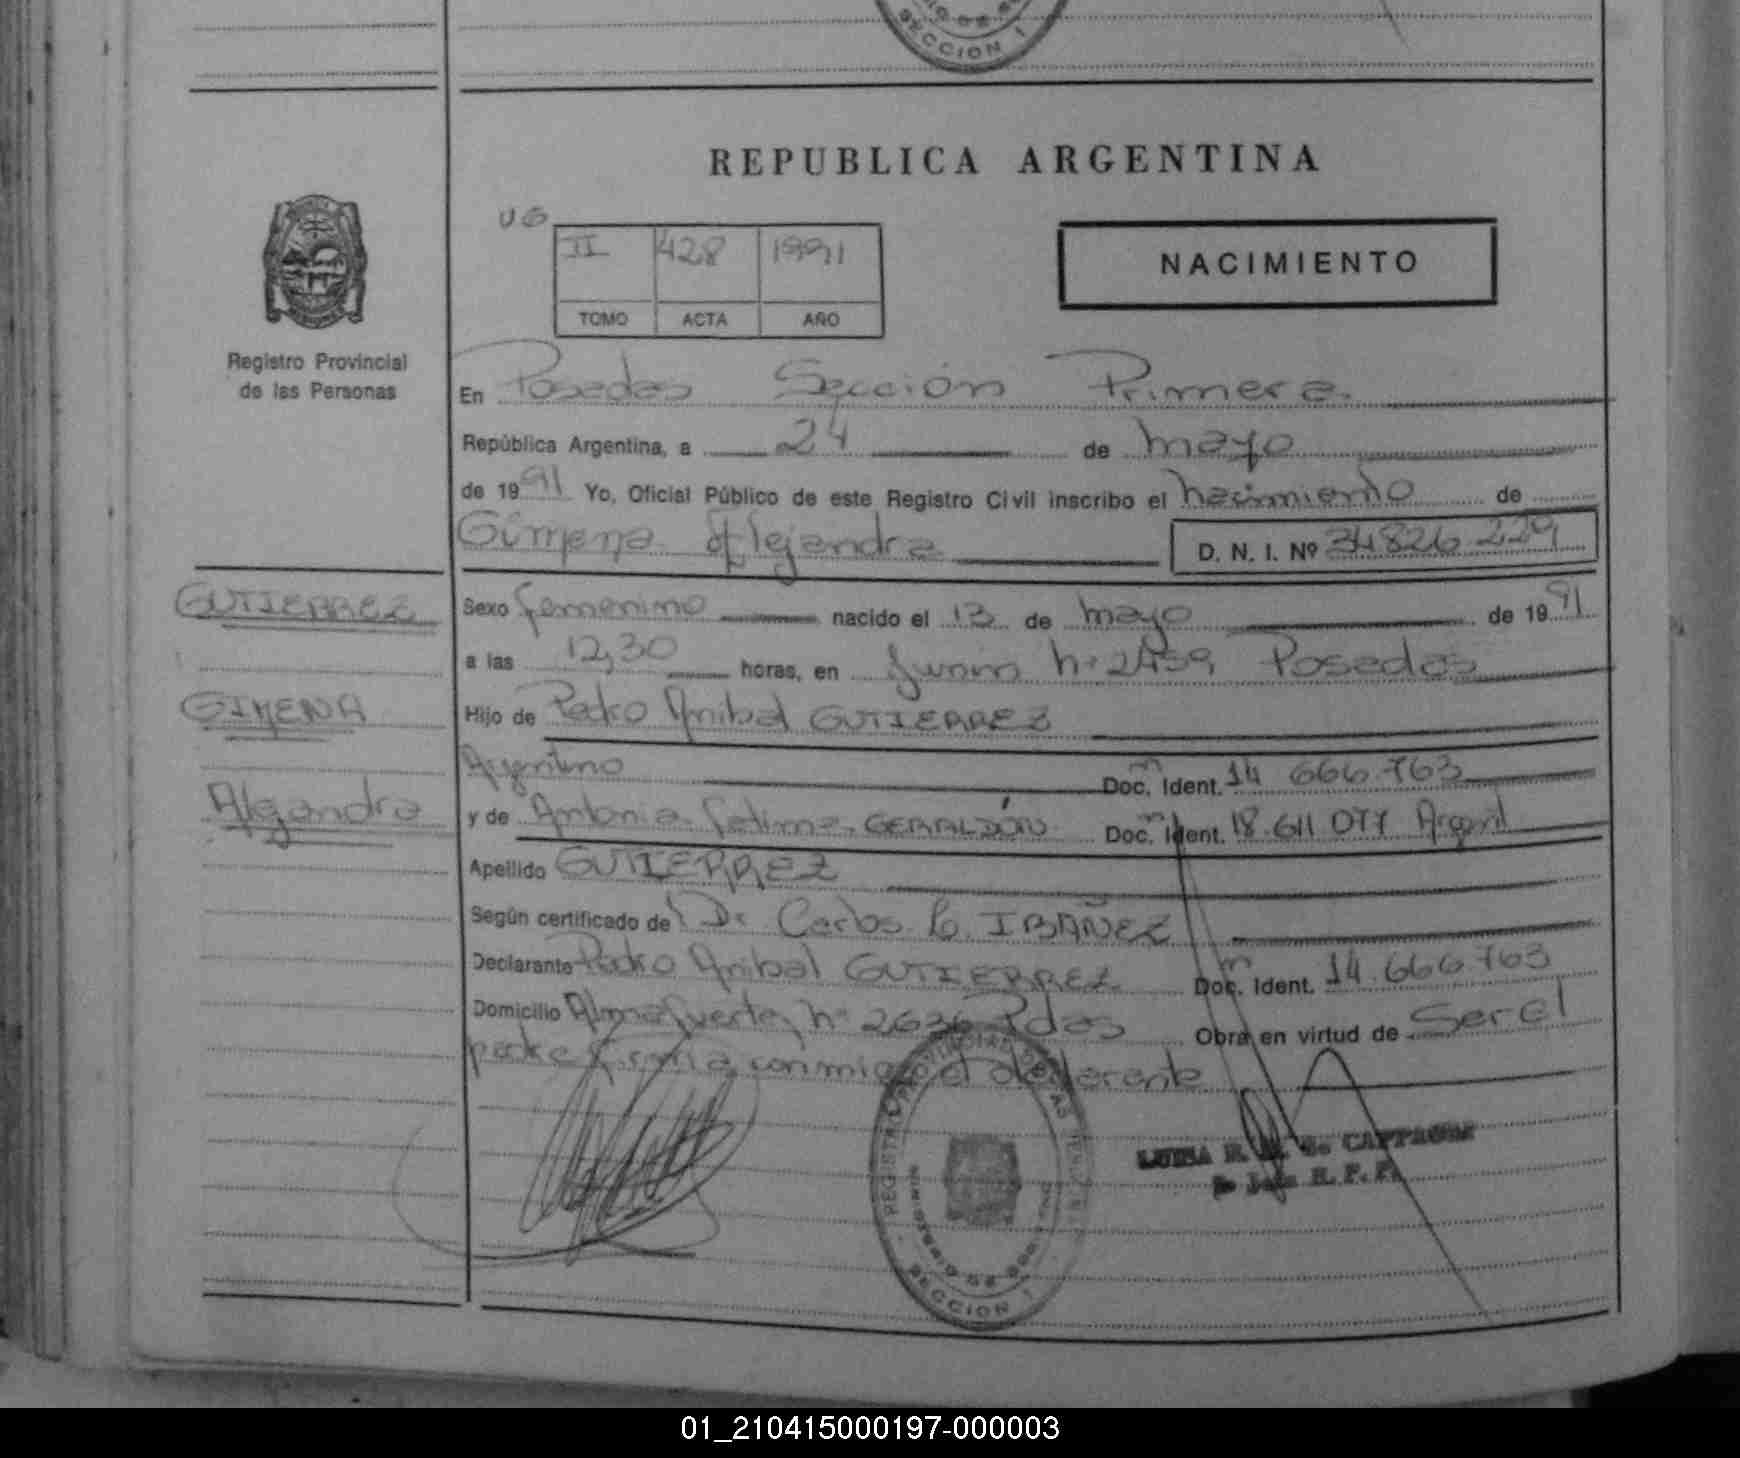 SECCION 1
REPUBLICA ARGENTINA
UG
II 428 1991
TOMO ACTA AÑO
NACIMIENTO
Registro Provincial
de las Personas
En Posadas Sección Primera.
República Argentina, a 24 de mayo
de 1991 Yo, Oficial Público de este Registro Civil inscribo el nacimiento de
Gimena Alejandra D. N. I. Nº 34826.229
GUTIERREZ
GIMENA
Alejandra
Sexo femenino nacido el 13 de mayo de 1991
a las 12,30 horas, en Junin nº 2459 Posadas
Hijo de Pedro Anibal GUTIERREZ
Argentino Doc. Ident. 14 666.763
y de Antonia Fatima GERALDON Doc. Ident. 18.611 077 Argent
Apellido GUTIERREZ
Según certificado de Dr Carlos IBAÑEZ
Declarante Pedro Anibal GUTIERREZ Doc. Ident. 14.666.763
Domicilio Almafuerte nº 2636 Pdas Obra en virtud de Ser el
padre firma conmigo el declarante
REGISTRO PROVINCIAL DE LAS PERSONAS
MINISTERIO DE GOBIERNO
SECCION 1
LUISA R. de
01_210415000197-000003